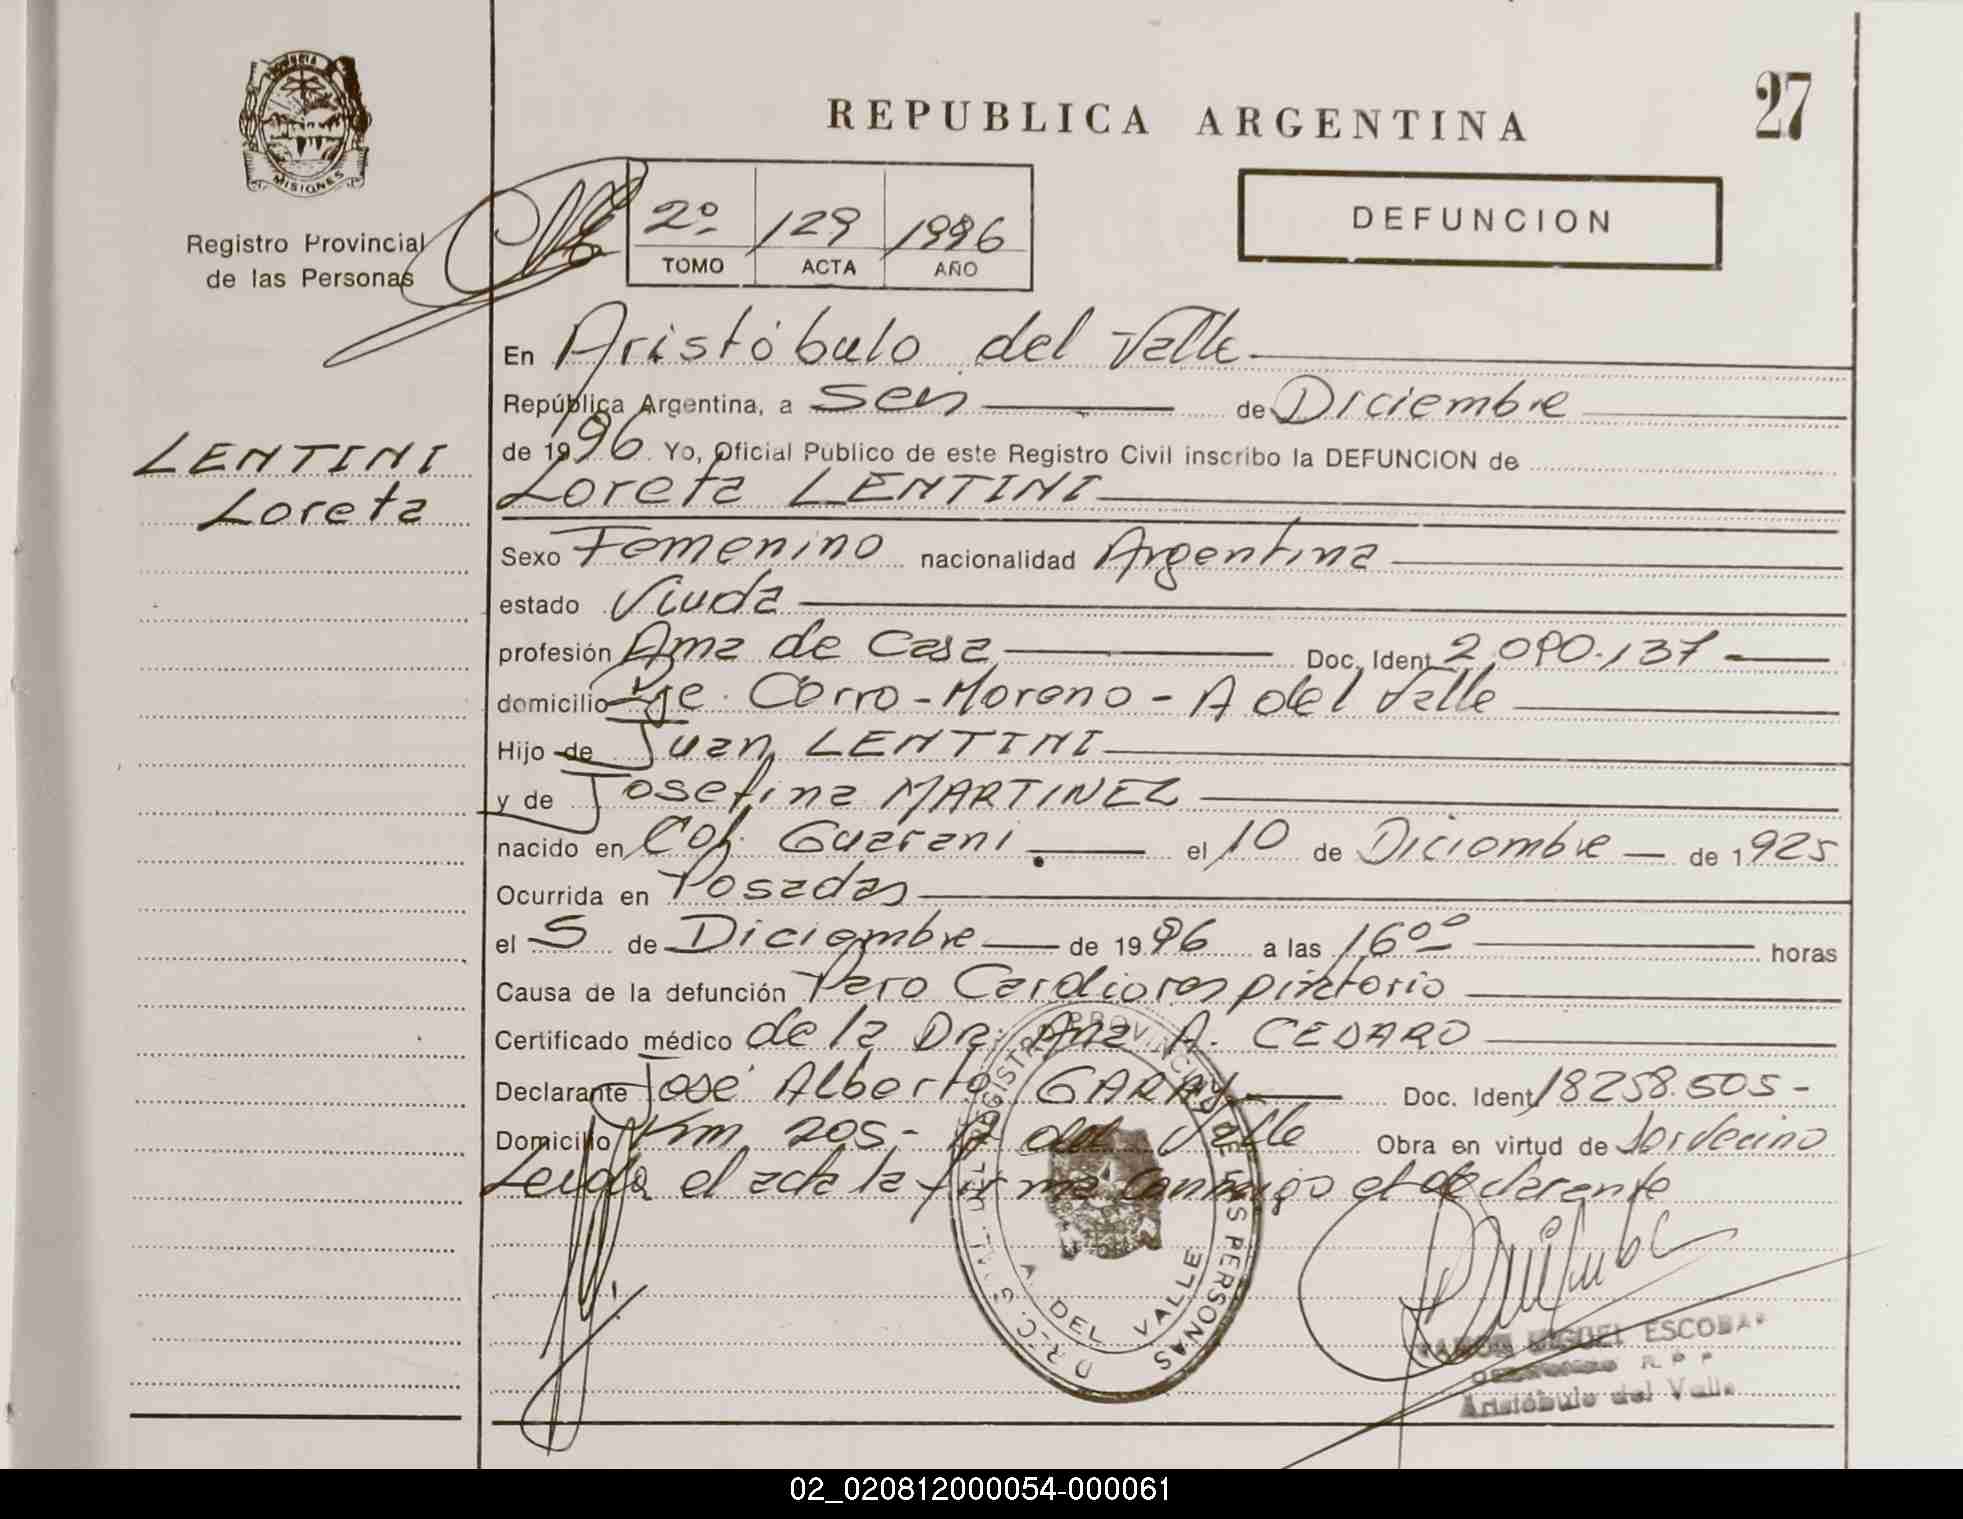 REPUBLICA ARGENTINA
27
MISIONES
Registro Provincial
de las Personas
2º 129 1996
TOMO ACTA AÑO
DEFUNCION
LENTINI
Loreta
En Aristóbulo del Valle
República Argentina, a seis de Diciembre
de 1996 Yo, Oficial Público de este Registro Civil inscribo la DEFUNCION de
Loreta LENTINI
Sexo Femenino nacionalidad Argentina
estado Viuda
profesión Ama de Casa Doc. Ident 2.090.137
domicilio Pje. Cerro-Moreno - A del Valle
Hijo de Juan LENTINI
y de Josefina MARTINEZ
nacido en Col. Guarani el 10 de Diciembre de 1925
Ocurrida en Posadas
el 5 de Diciembre de 1996 a las 16⁰⁰ horas
Causa de la defunción Paro Cardiorespiratorio
Certificado médico de la Dra. Ana A. CEDARO
Declarante José Alberto GARAY Doc. Ident 18258.505-
Domicilio Km 205- A del Valle Obra en virtud de ser vecino
Leida el acta la firma conmigo el declarante
REGISTRO PROVINCIAL DE LAS PERSONAS
DEL VALLE
RAMON MIGUEL ESCOBAR
R. P. P.
Aristóbulo del Valle
02_020812000054-000061